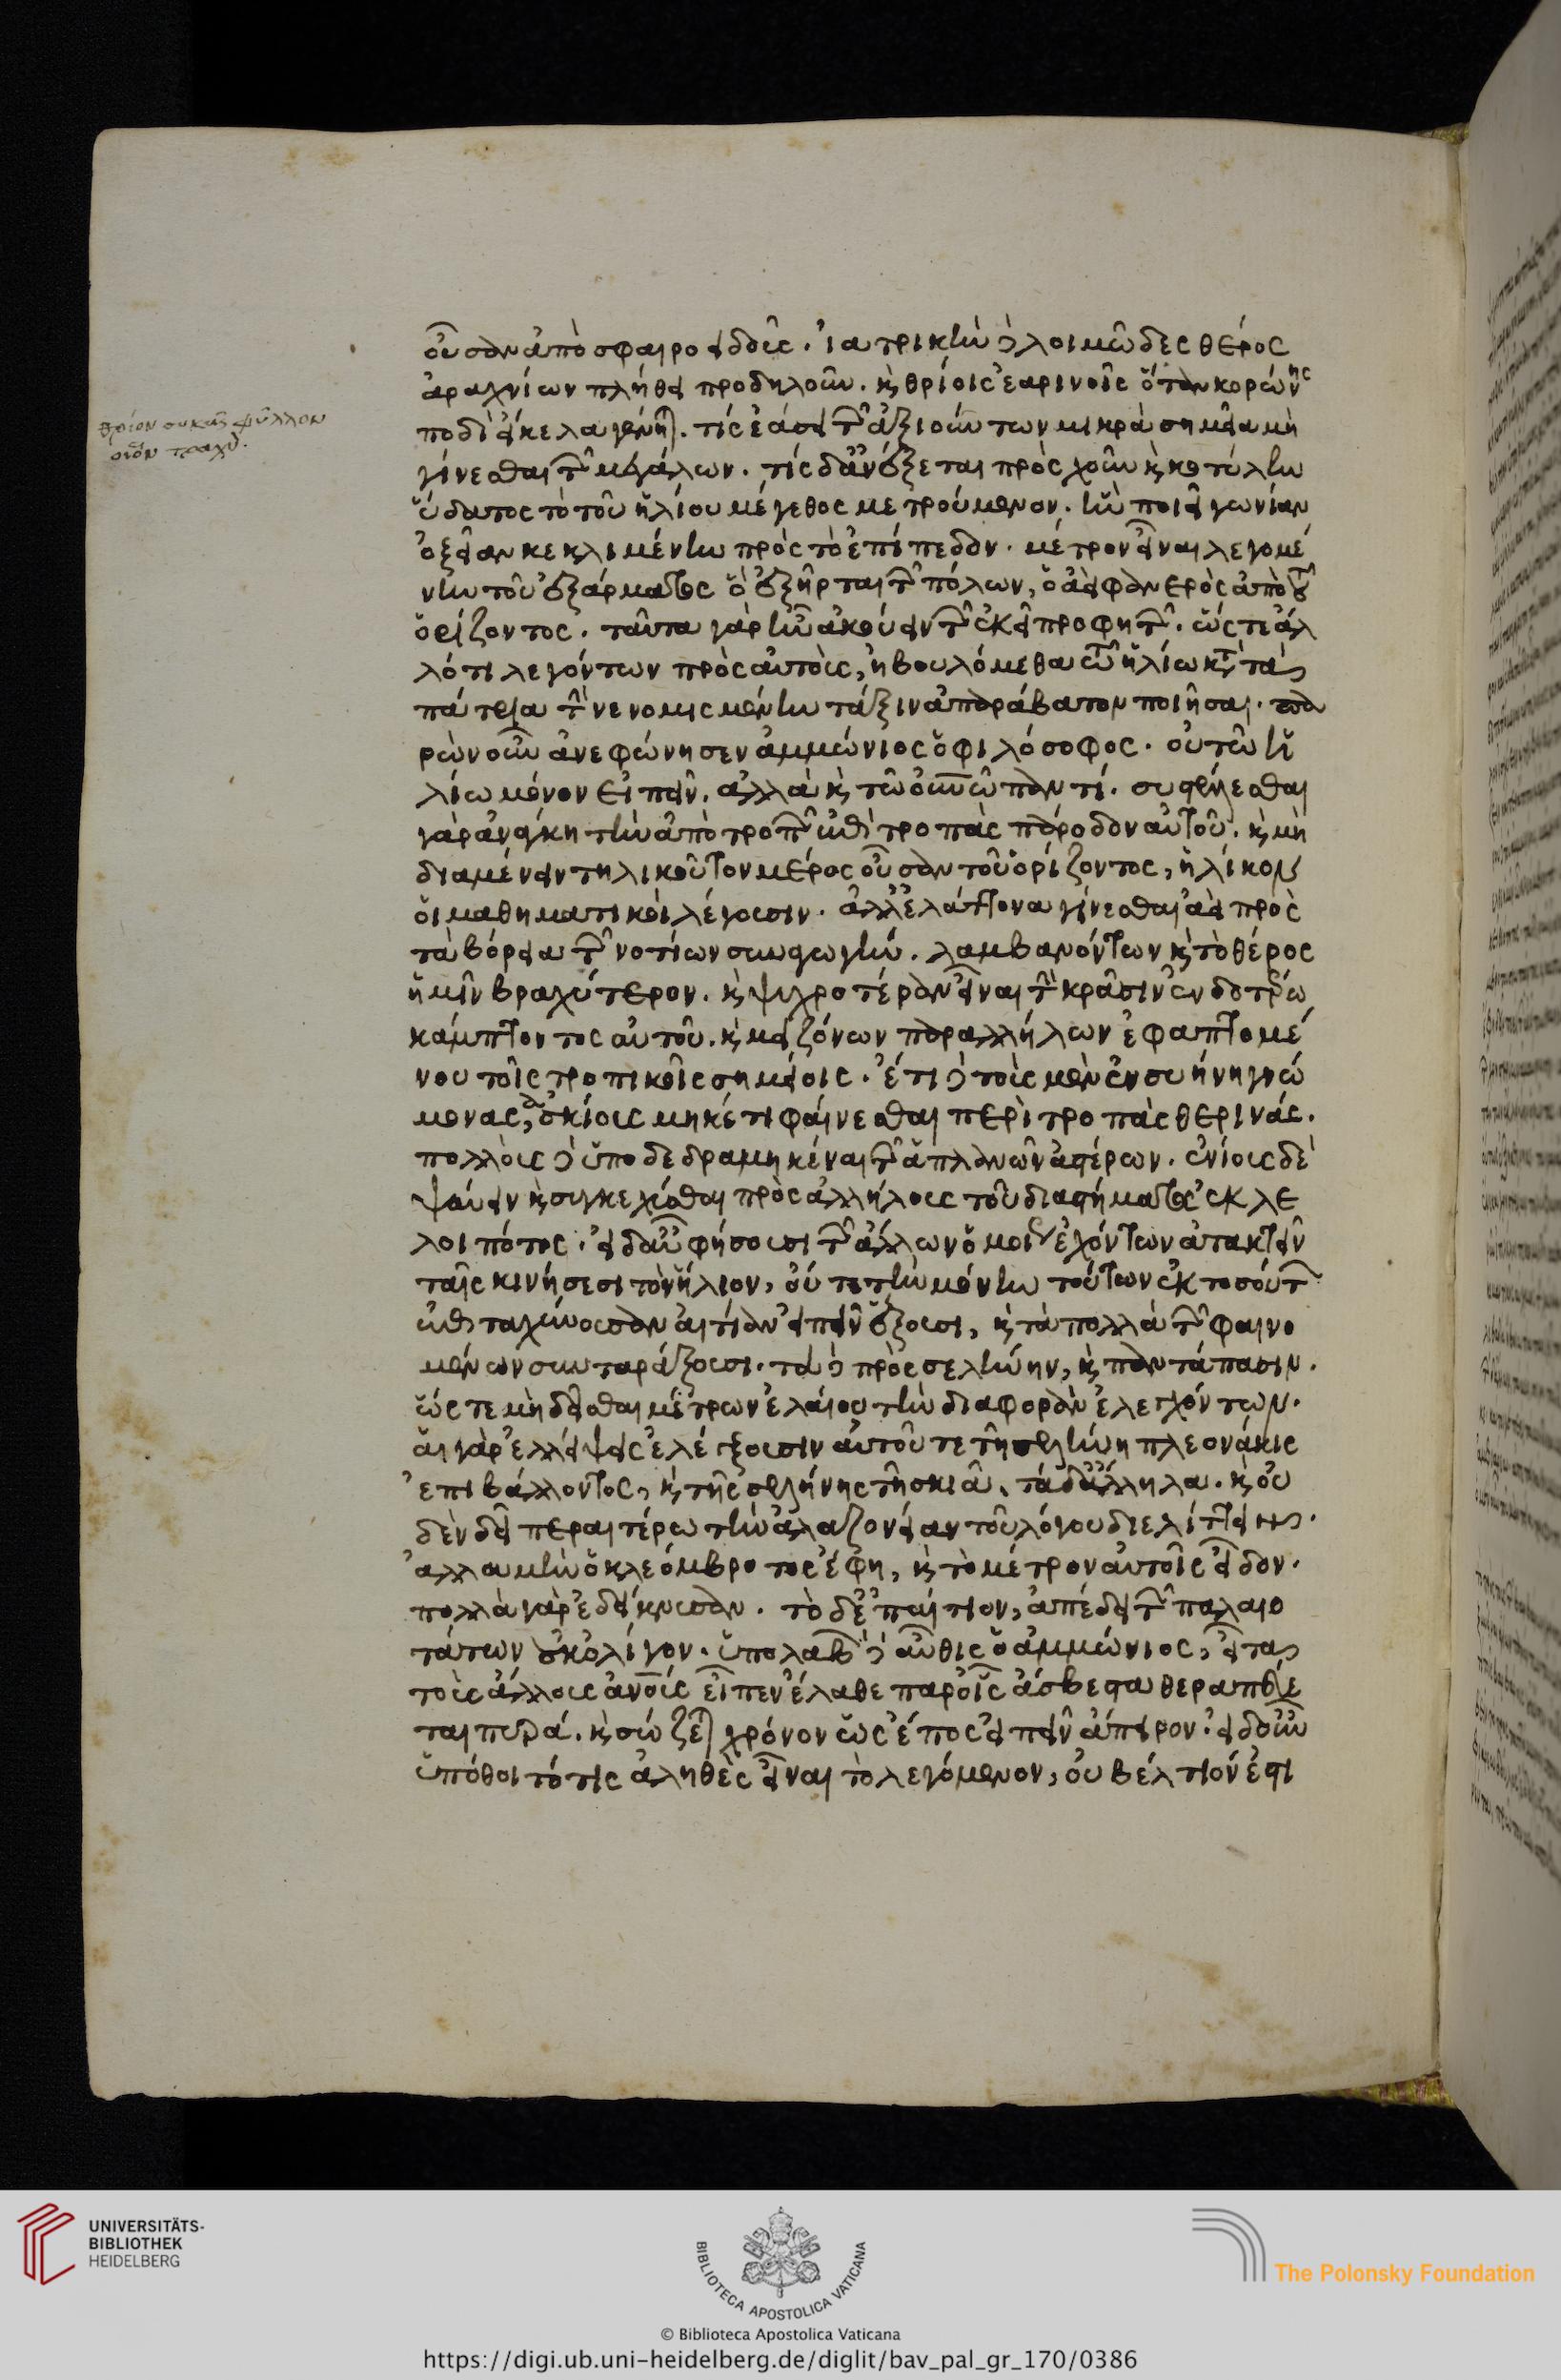 θρίον συκῆς φύλλον
οἷον τραχύ.
οὖσαν ἀπὸ σφαιροειδοῦς. ἰατρικὴν δὲ λοιμῶδες θέρος
ἀραχνίων πλήθει προδηλοῦν. καὶ θρίοις ἐαρινοῖς ὅταν κορώνης
ποδὶ εἴκελα γένηται. τίς ἐάσει τῶν ἀξιούντων μικρὰ σημεῖα μὴ
γίνεσθαι τῶν μεγάλων. τίς δ' ἀνέξεται πρὸς χοῦν καὶ κοτύλην
ὕδατος τὸ τοῦ ἡλίου μέγεθος μετρούμενον. ἣν ποιεῖ γωνίαν
ὀξεῖαν κεκλιμένην πρὸς τὸ ἐπίπεδον. μέτρον εἶναι λεγομέ
νην τοῦ ἐξάρματος ὃ ἐξῆρται τῶν πόλων, ὁ ἀεὶ φανερὸς ἀπὸ τοῦ
ὁρίζοντος. ταῦτα γὰρ ἦν ἀκούειν τῶν ἐκεῖ προφητῶν. ὥστε ἄλ
λό τι λεγόντων πρὸς αὐτοὺς, ἢ βουλόμεθα τῷ ἡλίῳ κατὰ τὰ
πάτρια τὴν νενομισμένην τάξιν ἀπαράβατον ποιῆσαι. πα
ρὼν οὖν ἀνεφώνησεν ἀμμώνιος ὁ φιλόσοφος. οὐ τῷ ἡ
λίῳ μόνον εἰπεῖν. ἀλλὰ καὶ τῷ οὐρανῷ παντί. συστέλλεσθαι
γὰρ ἀνάγκη τὴν ἀπὸ τροπῶν ἐπὶ τροπὰς πάροδον αὐτοῦ. καὶ μὴ
διαμένειν τηλικοῦτον μέρος οὖσαν τοῦ ὁρίζοντος, ἡλίκον
οἱ μαθηματικοὶ λέγουσιν. ἀλλ' ἐλάττονα γίνεσθαι ἀεὶ πρὸς
τὰ βόρεια τῶν νοτίων συναγωγὴν. λαμβανόντων καὶ τὸ θέρος
ἡμῖν βραχύτερον. καὶ ψυχροτέραν εἶναι τὴν κρᾶσιν ἐνδοτέρω
κάμπτοντος αὐτοῦ. καὶ μειζόνων παραλλήλων ἐφαπτομέ
νου τοῖς τροπικοῖς σημείοις. ἔτι δὲ τοὺς μὲν ἐν συήνῃ γνώ
μονας, ἀσκίους μηκέτι φαίνεσθαι περὶ τροπὰς θερινάς.
πολλοὺς δὲ ὑποδεδραμηκέναι τῶν ἀπλανῶν ἀστέρων. ἐνίους δὲ
ψαύειν καὶ συγκεχύσθαι πρὸς ἀλλήλους τοῦ διαστήματος ἐκλε
λοιπότος. εἰ δ' αὖ φήσουσι τῶν ἄλλων ὁμοίως ἐχόντων ἀτακτεῖν
ταῖς κινήσεσι τὸν ἥλιον, οὔτε τὴν μόνην τοῦτον ἐκ τοσούτων
ἐπιταχύνουσαν αἰτίαν εἰπεῖν ἕξουσι, καὶ τὰ πολλὰ τῶν φαινο
μένων συνταράξουσι. τὰ δὲ πρὸς σελήνην, καὶ παντάπασιν.
ὥστε μὴ δεῖσθαι μέτρων ἐλαίου τὴν διαφορὰν ἐλεγχόντων.
αἱ γὰρ ἐλλείψεις ἐλέγξουσιν αὐτοῦ τε τῇ σελήνῃ πλεονάκις
ἐπιβάλλοντος, καὶ τῆς σελήνης τῇ σκιᾷ. τὰ δ' ἄλληλα. καὶ οὐ
δὲν δεῖ περαιτέρω τὴν ἀλαζονείαν τοῦ λόγου διελίττειν.
ἀλλὰ μὴν ὁ κλεόμβροτος ἔφη, καὶ τὸ μέτρον αὐτοῖς εἶδον.
πολλὰ γὰρ ἐδείκνυσαν. τὸ δ' ἐπαίτιον, ἀπέδει τῶν παλαιο
τάτων οὐκ ὀλίγον. ὑπολαβὼν δὲ αὖθις ὁ ἀμμώνιος, εἶτα
τοὺς ἄλλους ἀνθρώπους εἶπεν ἔλαθε παρ' οἷς ἄσβεστα θεραπεύε
ται πυρά. καὶ σώζεται χρόνον ὡς ἔπος εἰπεῖν ἄπειρον. εἰ δ' οὖν
ὑπόθοιτό τις ἀληθὲς εἶναι τὸ λεγόμενον, οὐ βέλτιόν ἐστι
UNIVERSITÄTS-
BIBLIOTHEK
HEIDELBERG
BIBLIOTECA APOSTOLICA VATICANA
The Polonsky Foundation
© Biblioteca Apostolica Vaticana
https://digi.ub.uni-heidelberg.de/diglit/bav_pal_gr_170/0386